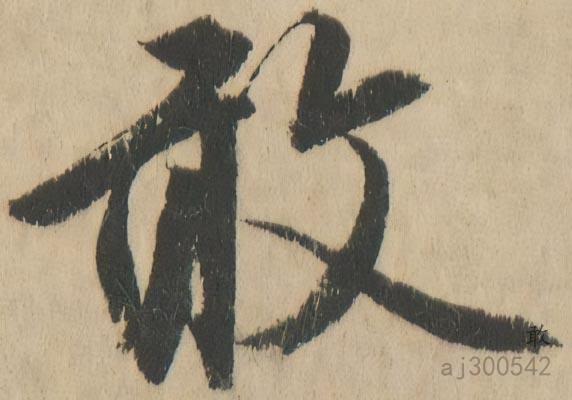 敢
敢
aj300542